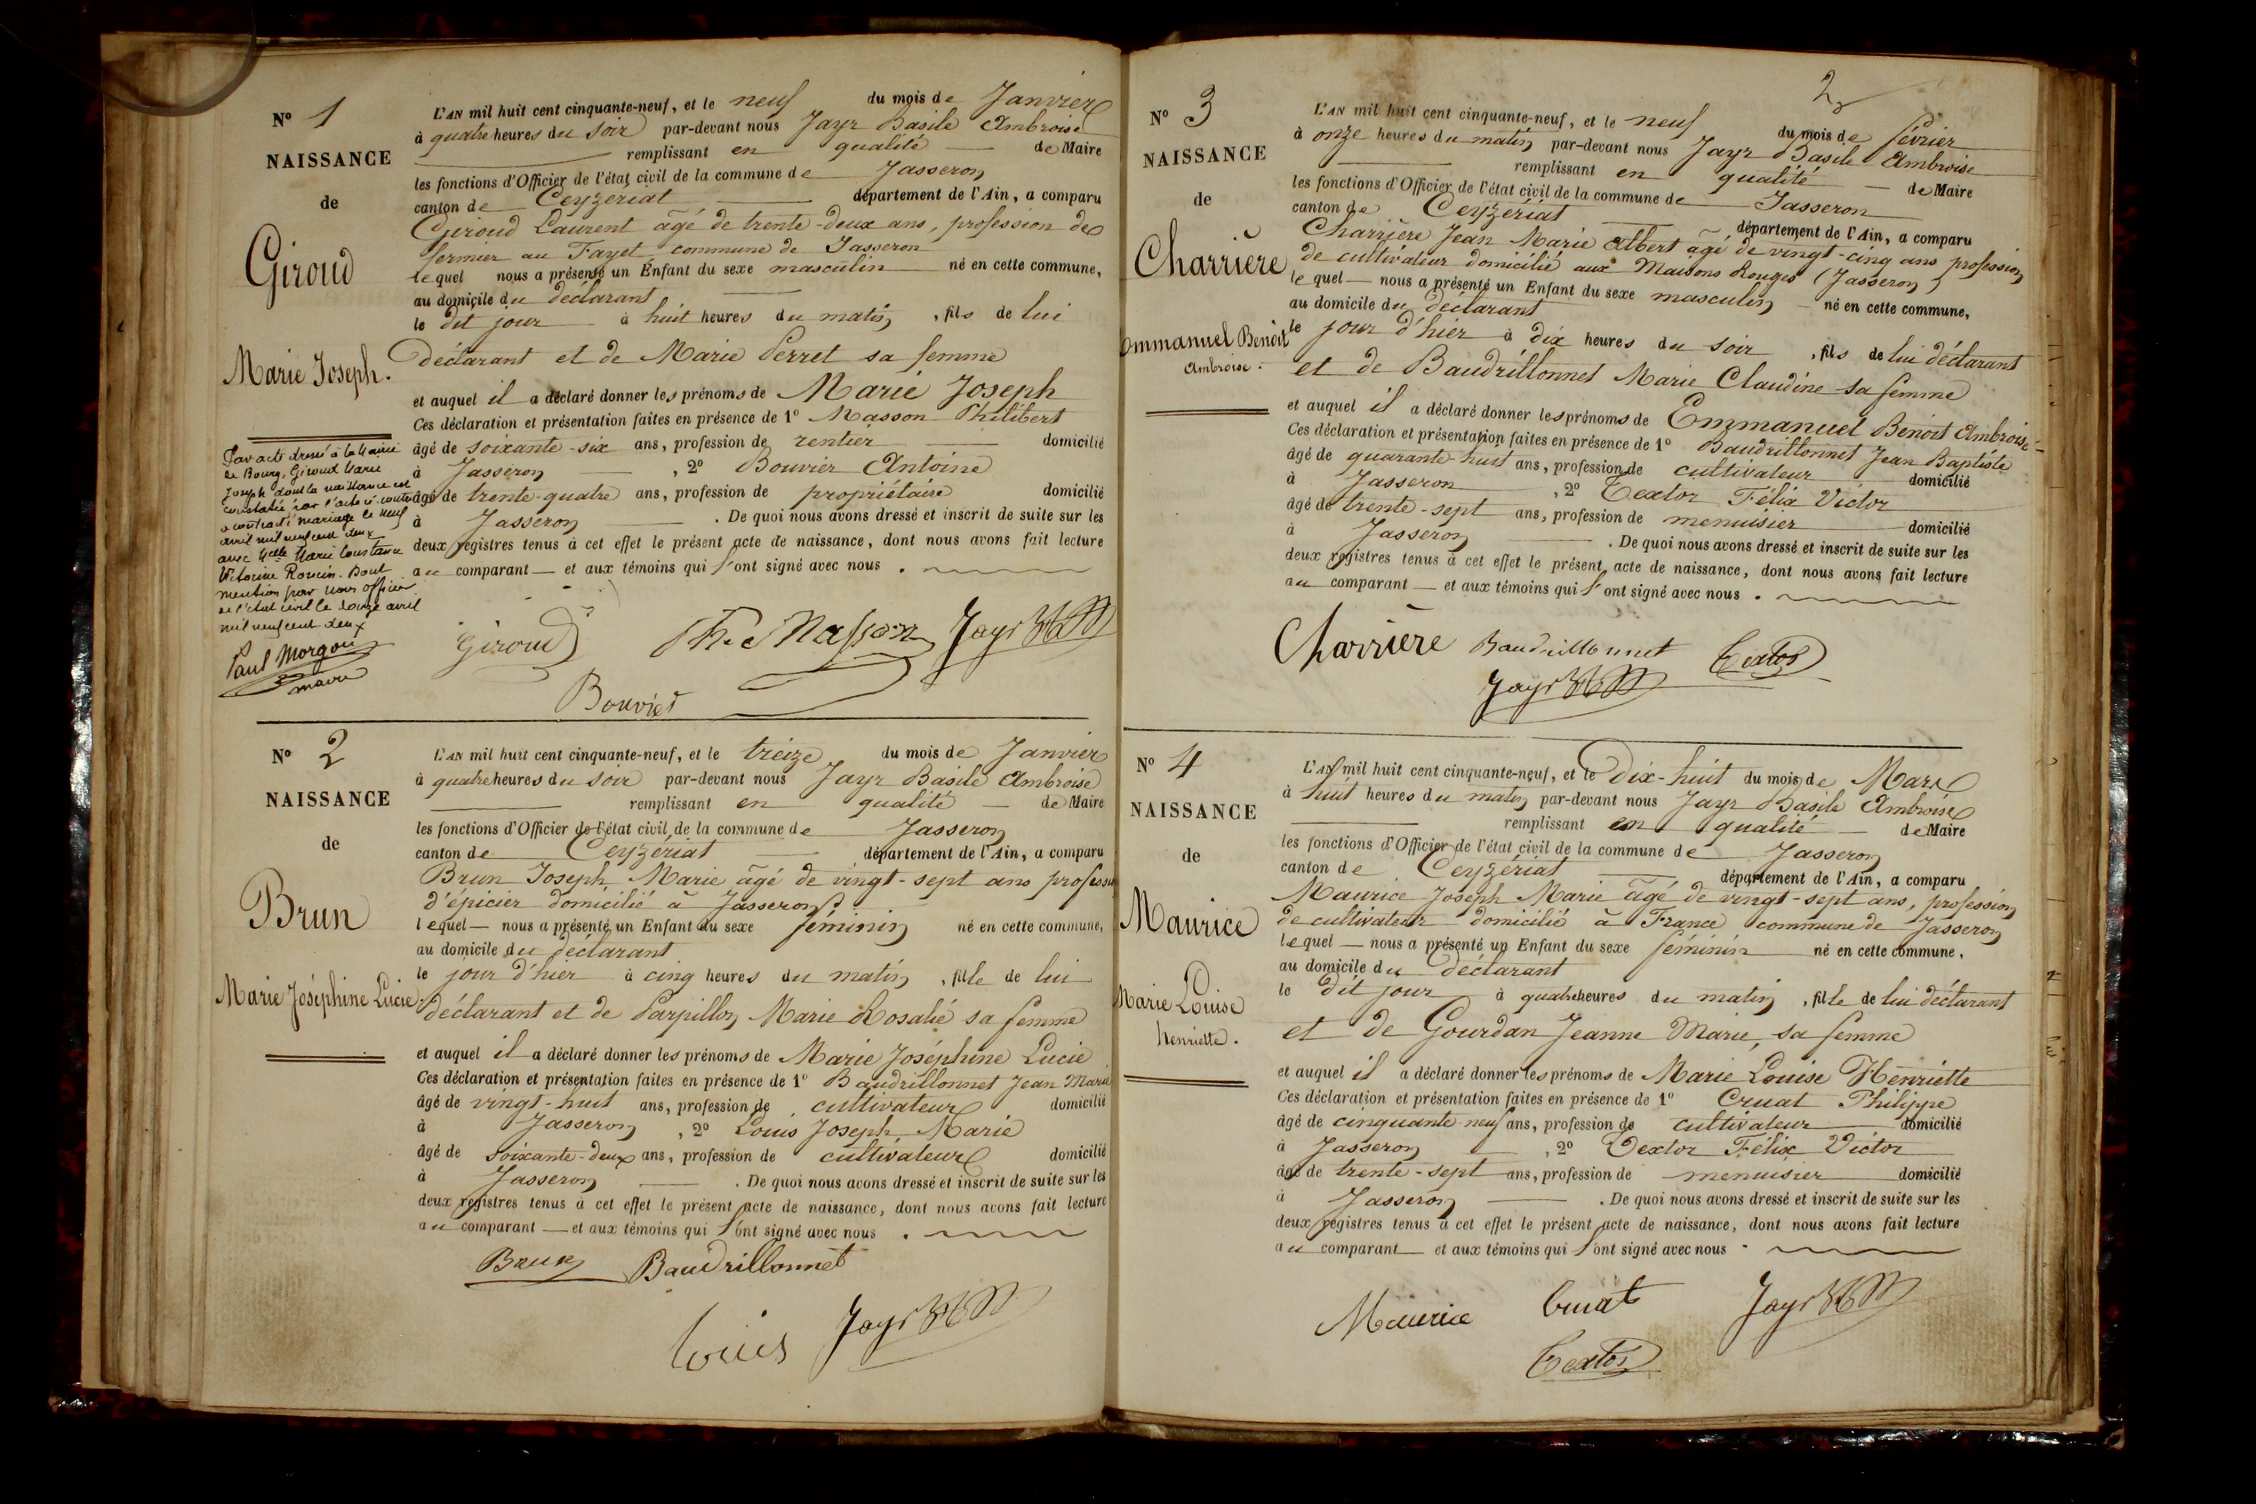 N° 1
NAISSANCE
de
Giroud
Marie Joseph.
Par acte dressé à la Mairie
de Bourg, Giroud Marie
Joseph dont la naissance est
constatée par l'acte ci contre
a contracté mariage le neuf
avril mil neuf cent deux
avec Melle Marie Constance
Victorine Roncin. Dont
mention par nous officier
de l'état civil le douze avril
mil neuf cent deux
Paul Morgon
maire
L'AN mil huit cent cinquante-neuf, et le neuf du mois de Janvier
à quatre heures du soir par-devant nous Jayr Basile Ambroise
remplissant en qualité de Maire
les fonctions d'Officier de l'état civil de la commune de Jasseron
canton de Ceyzériat département de l'Ain, a comparu
Giroud Laurent âgé de trente-deux ans, profession de
fermier au Fayet, commune de Jasseron
lequel nous a présenté un Enfant du sexe masculin né en cette commune,
au domicile du déclarant
le dit jour à huit heures du matin, fils de lui
déclarant et de Marie Perret sa femme
et auquel il a déclaré donner les prénoms de Marie Joseph
Ces déclaration et présentation faites en présence de 1° Masson Philibert
âgé de soixante-six ans, profession de rentier domicilié
à Jasseron, 2° Bouvier Antoine
âgé de trente-quatre ans, profession de propriétaire domicilié
à Jasseron. De quoi nous avons dressé et inscrit de suite sur les
deux registres tenus à cet effet le présent acte de naissance, dont nous avons fait lecture
au comparant et aux témoins qui l'ont signé avec nous.
Giroud Ph. Masson Jayr
Bouvier
N° 2
NAISSANCE
de
Brun
Marie Joséphine Lucie.
L'AN mil huit cent cinquante-neuf, et le treize du mois de Janvier
à quatre heures du soir par-devant nous Jayr Basile Ambroise
remplissant en qualité de Maire
les fonctions d'Officier de l'état civil de la commune de Jasseron
canton de Ceyzériat département de l'Ain, a comparu
Brun Joseph Marie âgé de vingt-sept ans profession
d'épicier domicilié à Jasseron
lequel nous a présenté un Enfant du sexe féminin né en cette commune,
au domicile du déclarant
le jour d'hier à cinq heures du matin, fille de lui
déclarant et de Parpillon Marie Rosalie sa femme
et auquel il a déclaré donner les prénoms de Marie Joséphine Lucie
Ces déclaration et présentation faites en présence de 1° Baudrillonnet Jean Marie
âgé de vingt-huit ans, profession de cultivateur domicilié
à Jasseron, 2° Louis Joseph Marie
âgé de soixante-deux ans, profession de cultivateur domicilié
à Jasseron. De quoi nous avons dressé et inscrit de suite sur les
deux registres tenus à cet effet le présent acte de naissance, dont nous avons fait lecture
au comparant et aux témoins qui l'ont signé avec nous.
Brun Baudrillonnet
Louis Jayr
2
N° 3
NAISSANCE
de
Charrière
Emmanuel Benoit
Ambroise.
L'AN mil huit cent cinquante-neuf, et le neuf du mois de février
à onze heures du matin par-devant nous Jayr Basile Ambroise
remplissant en qualité de Maire
les fonctions d'Officier de l'état civil de la commune de Jasseron
canton de Ceyzériat département de l'Ain, a comparu
Charrière Jean Marie Albert âgé de vingt-cinq ans profession
de cultivateur domicilié aux Maisons Rouges (Jasseron)
lequel nous a présenté un Enfant du sexe masculin né en cette commune,
au domicile du déclarant
le jour d'hier à dix heures du soir, fils de lui déclarant
et de Baudrillonnet Marie Claudine sa femme
et auquel il a déclaré donner les prénoms de Emmanuel Benoit Ambroise
Ces déclaration et présentation faites en présence de 1° Baudrillonnet Jean Baptiste
âgé de quarante-huit ans, profession de cultivateur domicilié
à Jasseron, 2° Textor Félix Victor
âgé de trente-sept ans, profession de menuisier domicilié
à Jasseron. De quoi nous avons dressé et inscrit de suite sur les
deux registres tenus à cet effet le présent acte de naissance, dont nous avons fait lecture
au comparant et aux témoins qui l'ont signé avec nous.
Charrière Baudrillonnet Textor
Jayr
N° 4
NAISSANCE
de
Maurice
Marie Louise
henriette.
L'AN mil huit cent cinquante-neuf, et le Dix-huit du mois de Mars
à huit heures du matin par-devant nous Jayr Basile Ambroise
remplissant en qualité de Maire
les fonctions d'Officier de l'état civil de la commune de Jasseron
canton de Ceyzériat département de l'Ain, a comparu
Maurice Joseph Marie âgé de vingt-sept ans, profession
de cultivateur domicilié à France commune de Jasseron
lequel nous a présenté un Enfant du sexe féminin né en cette commune,
au domicile du déclarant
le dit jour à quatre heures du matin, fille de lui déclarant
et de Gourdan Jeanne Marie, sa femme
et auquel il a déclaré donner les prénoms de Marie Louise Henriette
Ces déclaration et présentation faites en présence de 1° Cruat Philippe
âgé de cinquante-neuf ans, profession de cultivateur domicilié
à Jasseron, 2° Textor Félix Victor
âgé de trente-sept ans, profession de menuisier domicilié
à Jasseron. De quoi nous avons dressé et inscrit de suite sur les
deux registres tenus à cet effet le présent acte de naissance, dont nous avons fait lecture
au comparant et aux témoins qui l'ont signé avec nous.
Maurice Cruat Jayr
Textor